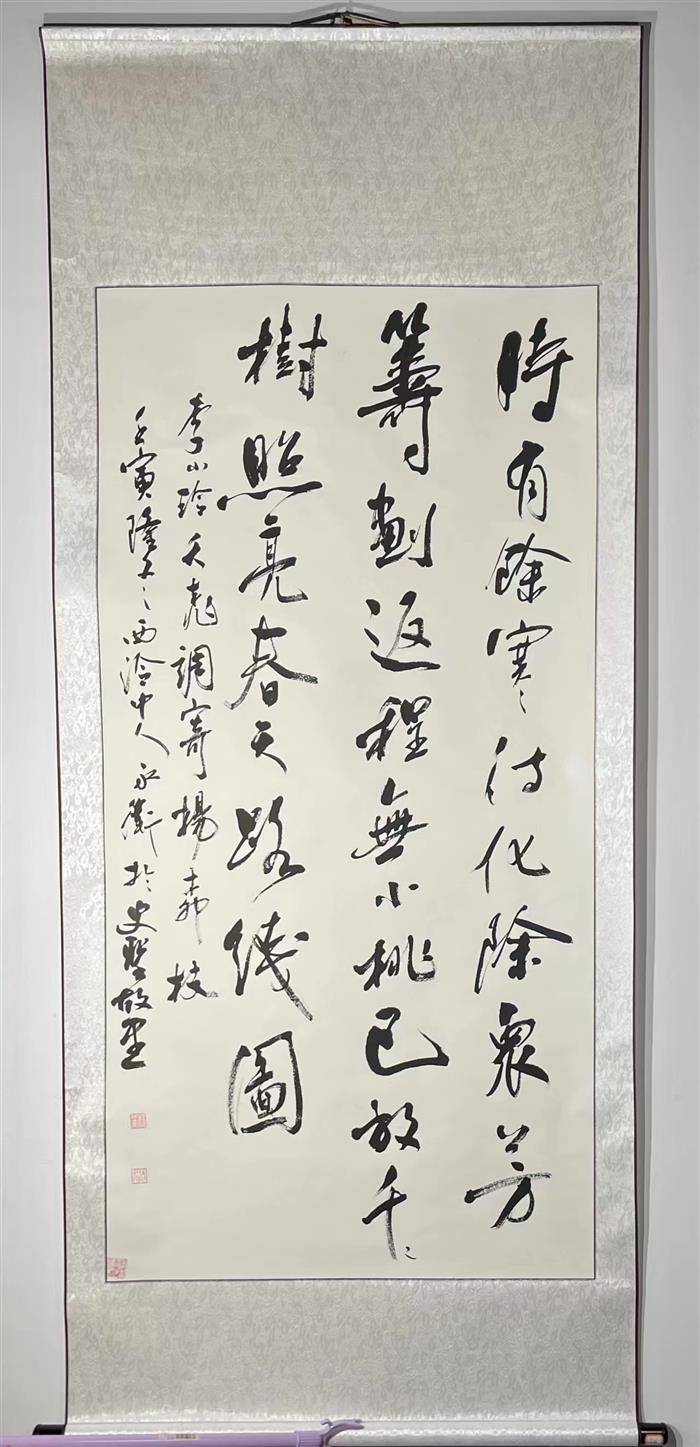 時有餘寒〻待化除衆芳
籌劃返程無小桃已放千〻
樹照亮春天路线圖
李小玲天彪調寄楊柳枝
壬寅隆冬〻西泠中人永衛於史聖故里